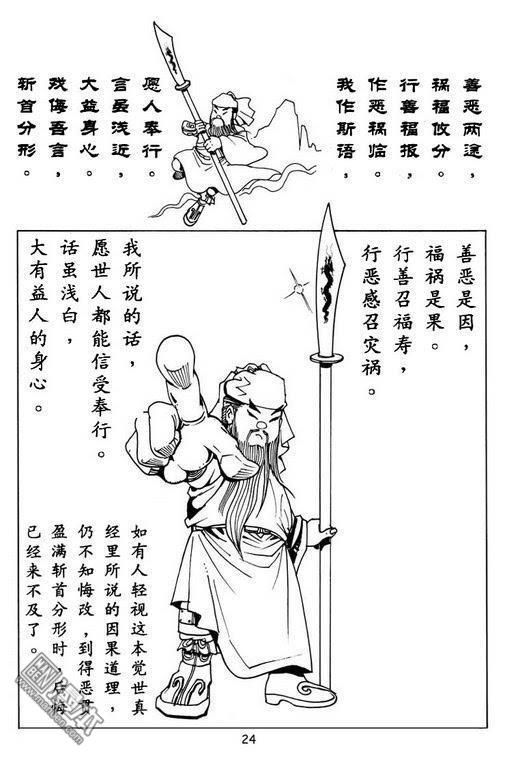 善恶两途，
祸福攸分。
行善福报，
作恶祸临。
我作斯语，
愿人奉行。
言虽浅近，
大益身心。
戏侮吾言，
斩首分形。
善恶是因，
福祸是果。
行善召福寿，
行恶感召灾祸。
我所说的话，
愿世人都能信受奉行。
话虽浅白，
大有益人的身心。
如有人轻视这本觉世真
经里所说的因果道理，
仍不知悔改，到得恶贯
盈满斩首分形时，后悔
已经来不及了。
24